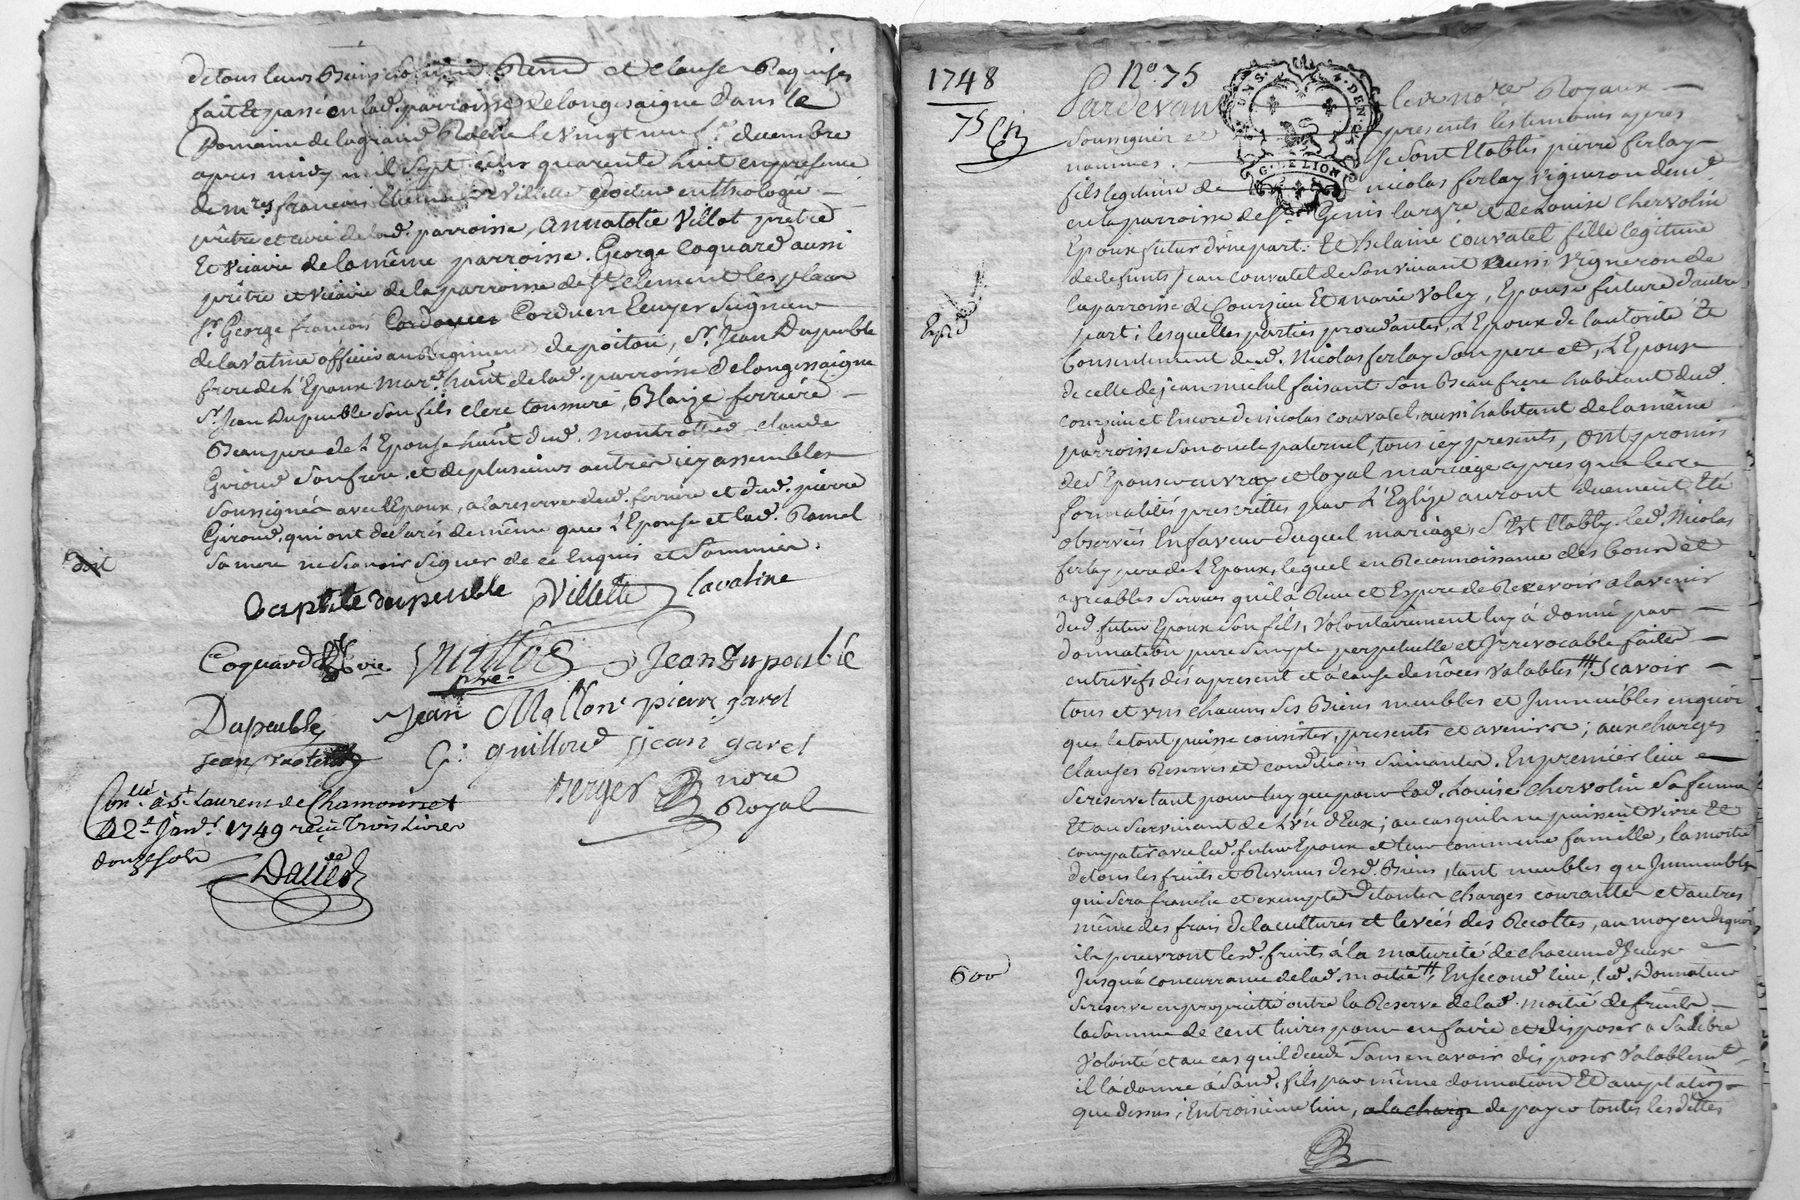 de tous leurs Biens et clause Requises
fait et passé en lad. parroisse de longessaigne dans le
Domaine de la grand le vingt neuf decembre
apres midy mil sept cens quarente huit en presence
de mre françois docteur en theologie
prêtre et curé de lad. parroisse, Annatolie Villot prêtre
Et vicaire de la même parroisse. George Coquard aussi
prêtre et vicaire de la parroisse de st. clement les places
sr. George françois Corduen Ecuyer Seigneur
de lavatine officier au Regiment de poitou, Sr. Jean Dupeuble
frere de l'Epoux hant de lad. parroisse de longessaigne
Sr. Jean Dupeuble son fils clerc tonsuré, Blaize ferriere
Beaupere de l'Epouse hant dud. montrottier claude
Giroud son frere, et de plusieurs autres icy assemblés
Soussignés avec l'Epoux, a la reserve dud. ferriere et dud. pierre
Giroud, qui ont declarés de même que l'Epouse et lad. Ramel
Sa mere ne scavoir signer de ce Enquis et Sommés.
Baptiste dupeuble Villette lavatine
Coquard vire Villot Jean Dupeuble
pre.
Dupeuble Jean Mollon pierre garel
Jean G. guilloud jean garel
Berger nore
Royal
Conllé à St. Laurent de Chamousset
le 2e Janvr 1749 reçu Trois Livres
douze sols
1748
N° 75
75
Pardevant le no.re Royaux
Soussigné et presents les temoins apres
nommés. Se sont Etablis pierre ferlay
G. DE LION
fils legitime de nicolas ferlay vigneron dem.t
en la parroisse de St. Genis largre et de Louise Chervolin
Epoux futur d'une part: Et helaine couvatel fille legitime
de defunts Jean Couvatel de son vivant aussi vigneron de
la parroisse de Courzieu Et marie Voley, Epouse future d'autre
part; lesquelles parties procedantes, l'Epoux de l'autorité et
Consentement dud. Nicolas ferlay son pere et, l'Epouse
Expé
de celle de jean michel faisant son Beaufrere habitant dud.
courzieu et Encore de nicolas couvatel, aussi habitant de la même
parroisse son oncle paternel, tous icy presents, ont promis
de s'Epouser en vray et loyal mariage apres que les
formalités prescrittes par L'Eglise auront duement Eté
observées En faveur duquel mariage, S'Est Etably led. Nicolas
ferlay pere de l'Epoux, lequel en Reconnoissance des bons et
agreables services qu'il a Reçu et Espere de Recevoir a l'avenir
dud. futur Epoux son fils, Volontairement luy à donné par
donnation pure simple perpetuelle et Irrevocable faite
entrevifs dés apresent et à cause de nôces Valables Scavoir
tous et uns chacuns ses Biens meubles et Immeubles en quoi
que le tout puisse consister, presents et avenirs; aux charges
clauses Reserves et conditions suivantes. En premier lieu
se reserve tant pour luy que pour lad. Louise Chervolin sa femme
Et au Survivant de l'un d'Eux; au cas qu'ils ne puissent vivre et
compatir avec led. futur Epoux et leur commune famille, la moitié
de tous les fruits et Revenus desd. Biens, tant meubles que Immeubles
qui sera franche et exempte de toutes charges courantes et autres
même des frais de la cultures et levées des Recoltes, au moyen de quoi
ils percevront lesd. fruits à la maturité de chacun d'Iceux
600
Jusqu'a concurrance de lad. moitié, En second lieu, led. Donnateur
se reserve en proprieté outre la Reserve de lad. moitié de fruits
la somme de cent livres pour en faire et disposer a Sa libre
volonté et au cas qu'il decede sans en avoir disposer valablement
il la donne à sond. fils par même donnation Et
que dessus; En troisieme lieu, a la charge de payer toutes les dettes